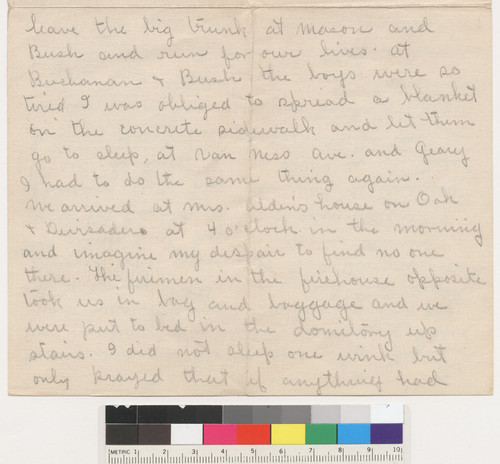 leave the big trunk at Mason and
Bush and run for our lives. At
Buchanan & Bush the boys were so
tired I was obliged to spread a blanket
on the concrete sidewalk and let them
go to sleep, at Van Ness Ave. and Geary
I had to do the same thing again.
We arrived at Mrs. house on Oak
& at 4 o'clock in the morning
and imagine my despair to find no one
there. The firemen in the firehouse opposite
took us in bag and baggage and we
were put to bed in the domitory up
stairs. I did not sleep one wink but
only prayed that if anything had
METRIC 1 2 3 4 5 6 7 8 9 10